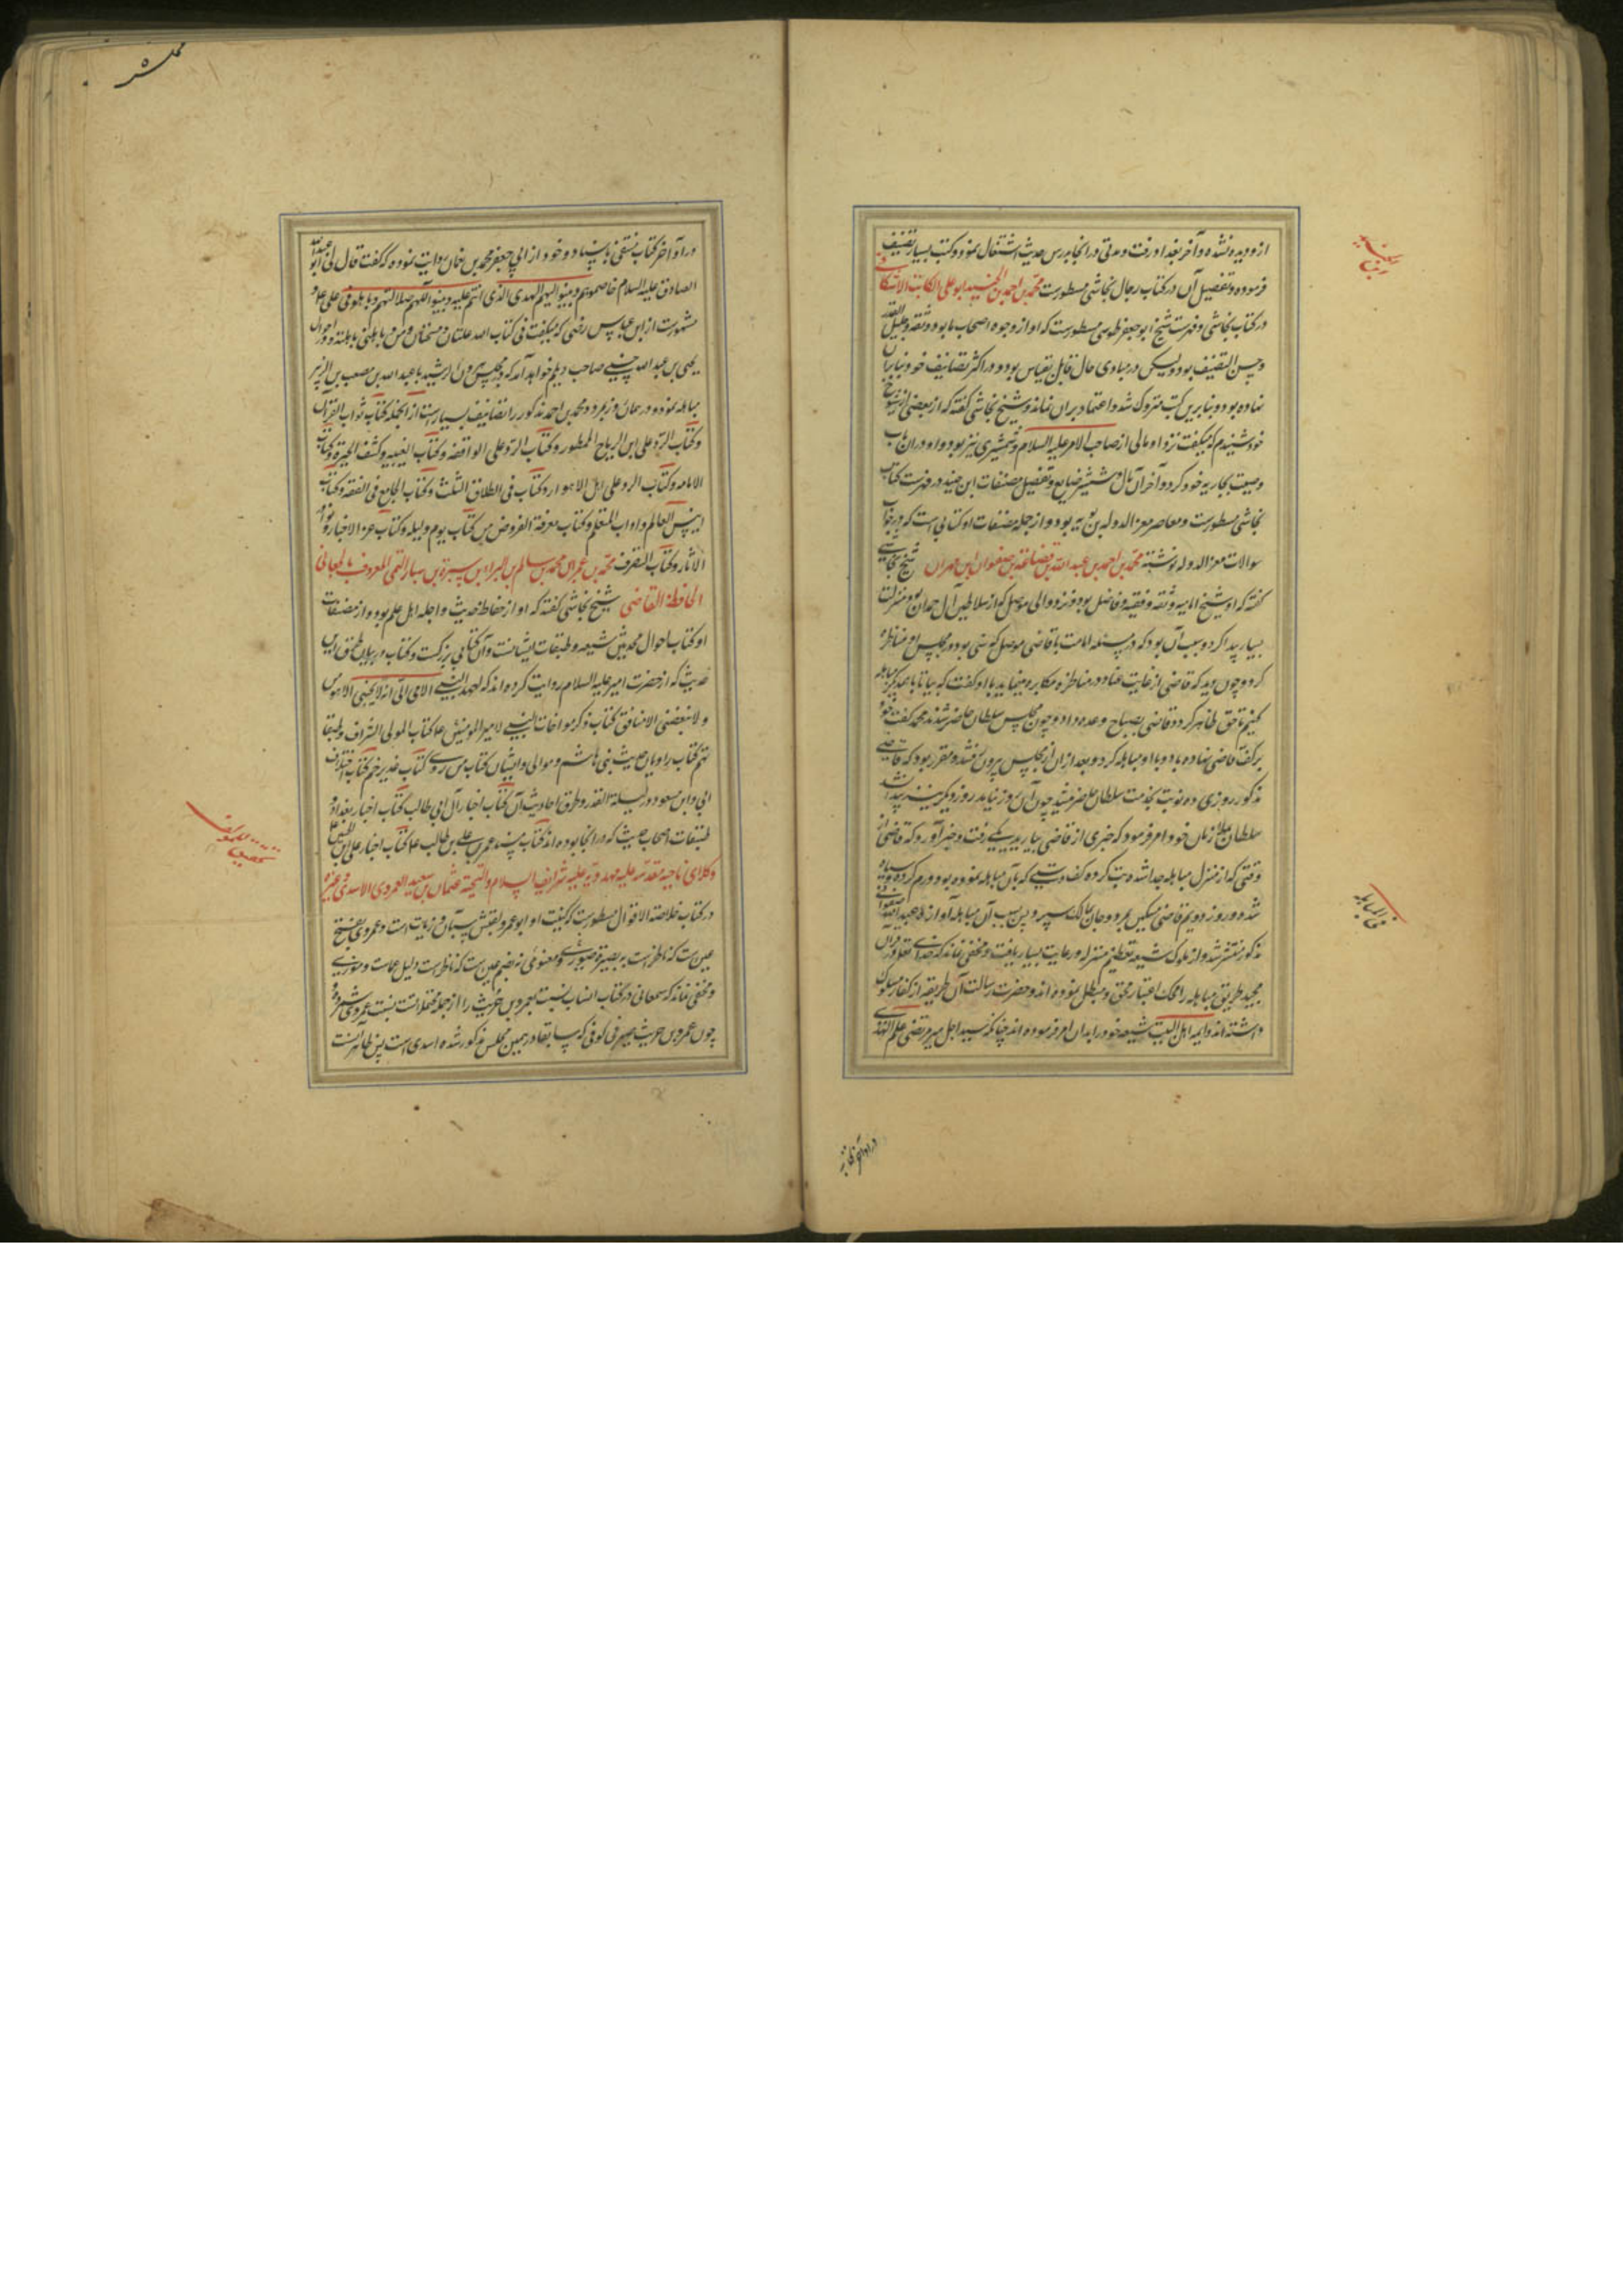 از و دیده نشده و آخر بغداد رفت و مدتی در انجا بدرس حدیث اشتغال نمود و کتب بسیار تصنیف
فرموده و تفصیل آن در کتاب رجال نجاشی مسطورست محمد بن احمد بن الجنید ابو علی الکاتب الاسکافی
در کتاب نجاشی و فهرست شیخ ابو جعفر طوسی مسطورست که او از وجوه اصحاب ما بود و ثقه و جلیل القدر
و حسن التصنیف بود ولیکن در مبادی حال قایل بقیاس بود و در اکثر تصانیف خود بنا بران
نهاده بود و بنا برین کتب متروک شد و اعتماد بران نماند و شیخ نجاشی گفته که از بعضی از شیوخ
خود شنیدم که میگفت نزد او مالی از صاحب الامر علیه السلام و شمشیری نیز بود و او دران باب
وصیت بجاریه خود کرد و آخر آن مال و شمشیر ضایع و تفصیل مصنفات ابن جنید در فهرست کتاب
نجاشی مسطورست و معاصر معز الدوله بن بویه بود و از جمله مصنفات او کتابی است که در جواب
سوالات معز الدوله نوشته محمد بن احمد بن عبد الله بن قضاعه بن صفوان بن مهران شیخ نجاشی
گفته که او شیخ امامیه و ثقه و فقیه و فاضل بود و نزد والی موصل که از سلاطین آل حمدان بود منزلت
بسیار پیدا کرد و سبب آن بود که در مسئله امامت با قاضی موصل که سنی بود در مجلس او مناظره
کرد و چون دید که قاضی از غایت عناد در مناظره مکابره مینماید با او گفت که بیا تا با همدیگر مباهله
کنیم تا حق ظاهر گردد قاضی بصباح وعده داد و چون مجلس سلطان حاضر شدند محمد کفت خود
بر کف قاضی نهاده با او مباهله کرد و بعد ازان از مجلس بیرون رفتند و مقرر بود که قاضی
مذکور روزی ده نوبت بخدمت سلطان حاضر میشد چون آن روز نیامد روز دیگر نیز پیدا نشد
سلطان ملازمان خود را امر فرمود که خبری از قاضی بیارید یکی رفت و خبر آورد که قاضی از
وقتی که از منزل مباهله جدا شده تب کرده کف دستی که بآن مباهله نموده بود ورم کرده و سیاه
شده و روز دویم قاضی مسکین بمرد و جان بمالک سپرد و بدین سبب آن مباهله آوازه عبد الله صفوانی
مذکور منتشر شد و نزد ملوک شیعه تعظیم و منزله و رعایت بسیار یافت و مخفی نماند که خدای تعالی در قرآن
مجید طریق مباهله را محک اعتبار محق و مبطل نموده اند و حضرت رسالت آن طریقه را با کفار مسلوک
داشته اند و ایمه اهل البیت شیعه خود را بدان امر فرموده اند چنانکه سید اجل میر مرتضی علم الهدی
در اواخر کتاب
در اواخر کتاب شفی باسناد خود از ابی جعفر محمد بن نعمان روایت نموده که گفت قال لی ابو عبد الله
الصادق علیه السلام خاصموهم و بینوا لهم الهدی الذی انتم علیه و بینوا لهم ضلالتهم و باهلوهم فی علی علیه
مشهورست از ابن عباس رضی که میگفت فی کتاب الله
یحیی بن عبد الله حسنی صاحب دیلم خواهد آمد که در مجلس هرون الرشید با عبد الله بن مصعب بن الزبیر
مباهله نمود و در همان روز بمرد و محمد بن احمد مذکور را تصانیف بسیار است از انجمله کتاب ثواب القرآن
و کتاب الرد علی ابن الریاح الممطور و کتاب الرد علی الواقفه و کتاب الغیبه و کشف الحیره و کتاب
الامامه و کتاب الرد علی اهل الاهواء و کتاب فی الطلاق الثلث و کتاب الجامع فی الفقه و کتاب
انس العالم و اداب المتعلم و کتاب معرفة الفروض من کتاب یوم و لیله و کتاب غرر الاخبار و نوادر
الاثار و کتاب التصرف محمد بن عمر بن محمد بن سالم بن البراء بن سبرة بن سیار التمیمی المعروف بالجعابی
الحافظ القاضی شیخ نجاشی گفته که او از حفاظ حدیث و اجله اهل علم بود و از مصنفات
او کتاب احوال محدثین شیعه و طبقات ایشانست و آن کتابی بزرگست و کتاب در بیان طرق این
حدیث که از حضرت امیر علیه السلام روایت کرده اند که لعهد النبی الامی الی انه لا یحبنی الا مومن
و لا یبغضنی الا منافق کتاب ذکر مواخات النبی لامیر المومنین کتاب المولی الشراف و طبقا
تهم کتاب راویان حدیث بنی هاشم و موالی و ایشان کتاب من روی کتاب غدیر خم کتاب اختلاف
ابی و ابن مسعود در لیلة القدر و طرق احادیث آن کتاب اخبار آل ابی طالب کتاب اخبار بغداد و
طبقات اصحاب حدیث که در انجا بوده اند کتاب مسند عمر بن علی بن ابی طالب کتاب اخبار علی بن الحسین
وکلای ناحیه مقدسه علیه مهدویه علیه شرایف السلام و التحیه عثمان بن سعید العمروی الاسدی
در کتاب خلاصة الاقوال مسطورست که کنیت او ابو عمرو لقبش سمان و زیات است و عمروی بفتح
عین ست که
و مخفی نماند که سمعانی در کتاب انساب نسبت بعمرو بن حریث را از جمله
چون عمرو بن حریث صیرفی کوفی که سابقا در همین مجلس مذکور شده اسدی است پس ظاهر آنست